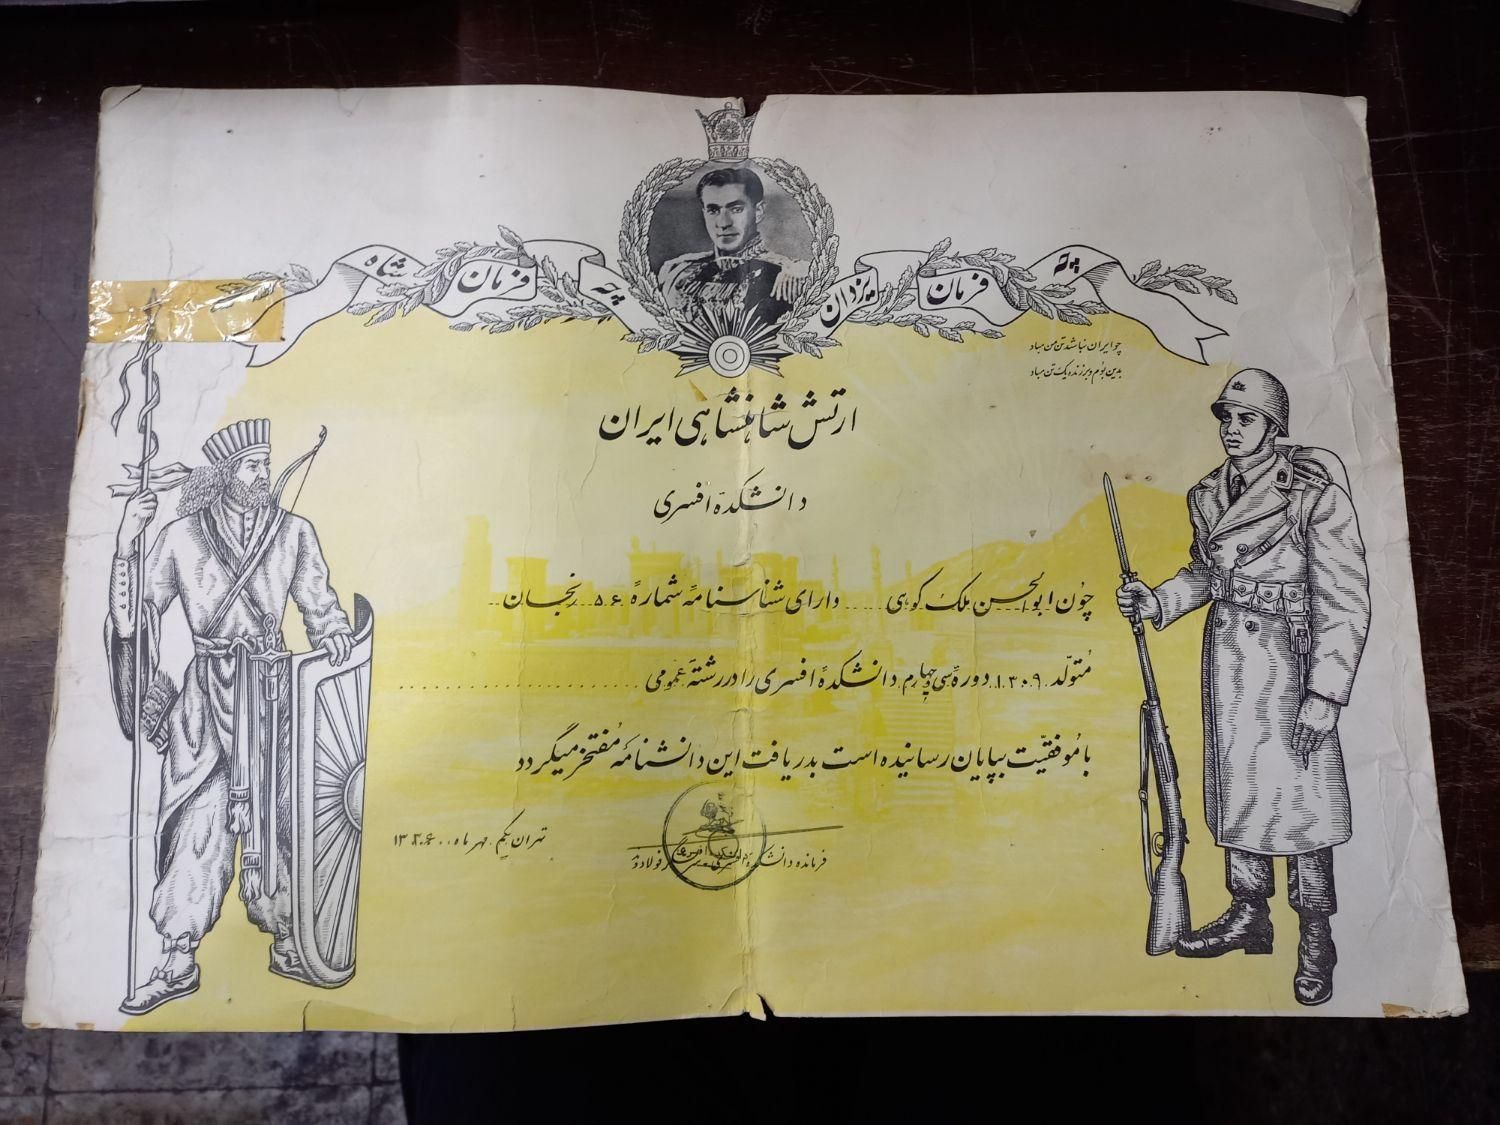 به فرمان یزدان به فرمان شاه
چو ایران نباشد تن من مباد
بدین بوم و بر زنده یک تن مباد
ارتش شاهنشاهی ایران
دانشکدهٔ افسری
چون ابوالحسن ملک کوهی دارای شناسنامهٔ شمارهٔ ۵۰۶ زنجان
متولد ۱۳۰۹ دورهٔ سی و چهارم دانشکدهٔ افسری را در رشتهٔ عمومی
با موفقیت بپایان رسانیده است بدریافت این دانشنامه مفتخر میگردد
تهران یکم مهر ماه
فرمانده دانشکدهٔ افسری فولادوند